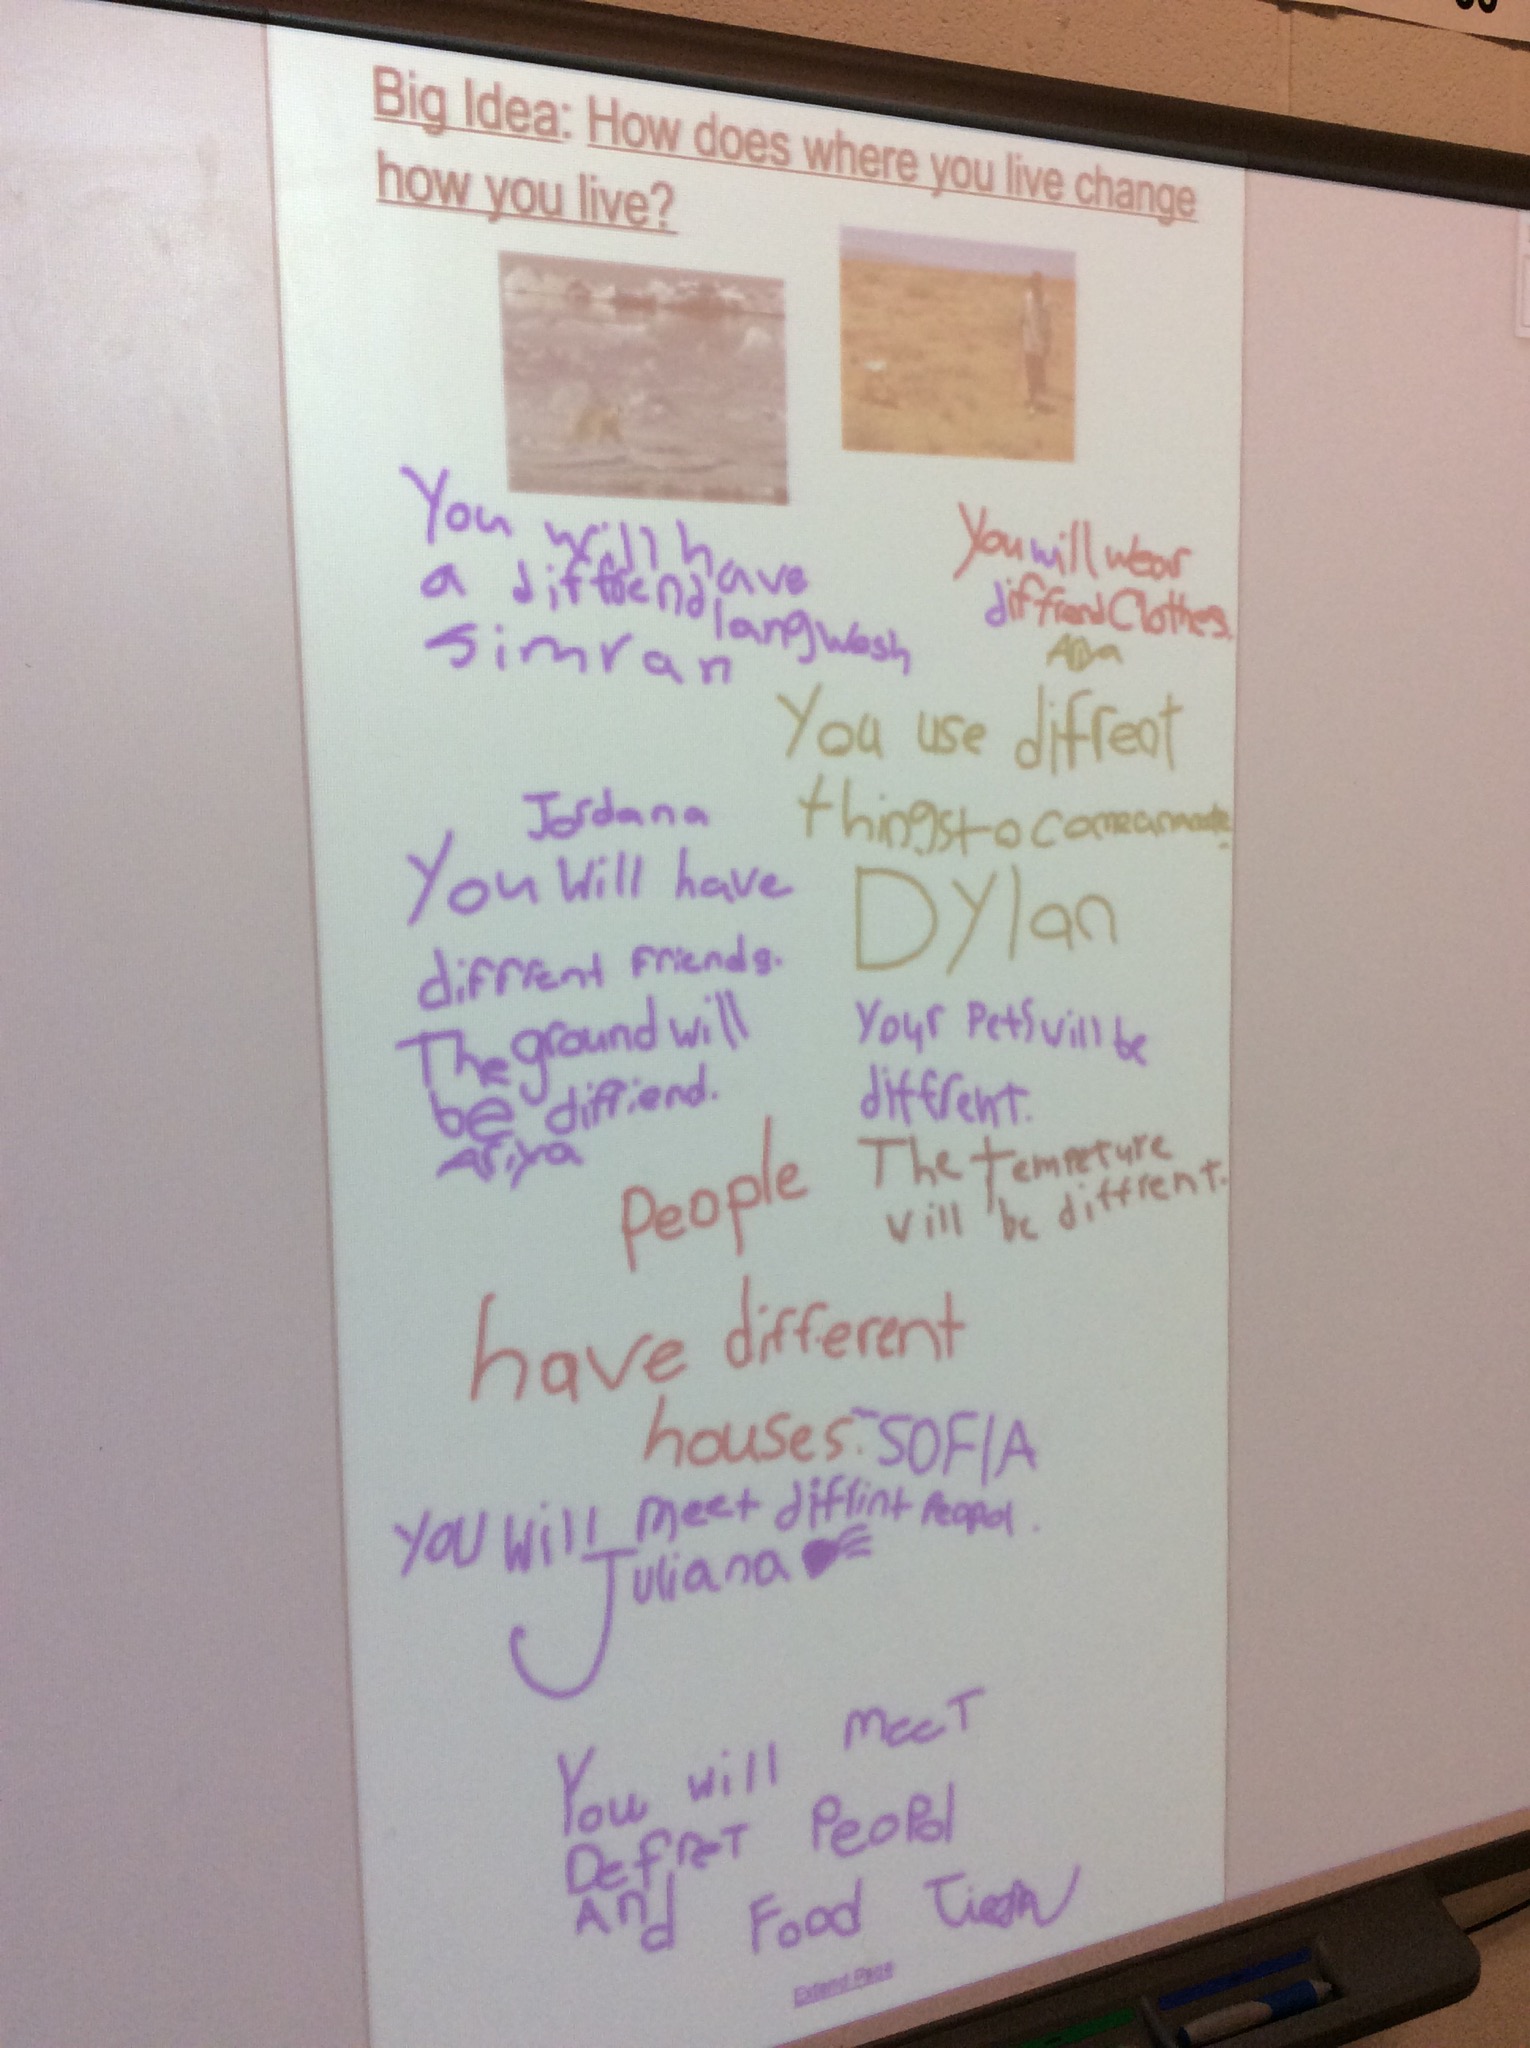 Big Idea: How does where you live change
how you live?
You will have
a diffrend langwash
Simran
You will wear
diffrend Clothes.
You use difreot
things to
Dylan
Jordana
You Will have
diffrent Friends.
The ground will
be diffriend.
Afiya
Your Pets vill be
diffrent.
The tempeture
vill be diffrent.
People
have different
houses. -SOFIA
YOU Will meet diffrint Peopol.
Juliana
You will meeT
DefreT PeoPol
And Food
Extend Page